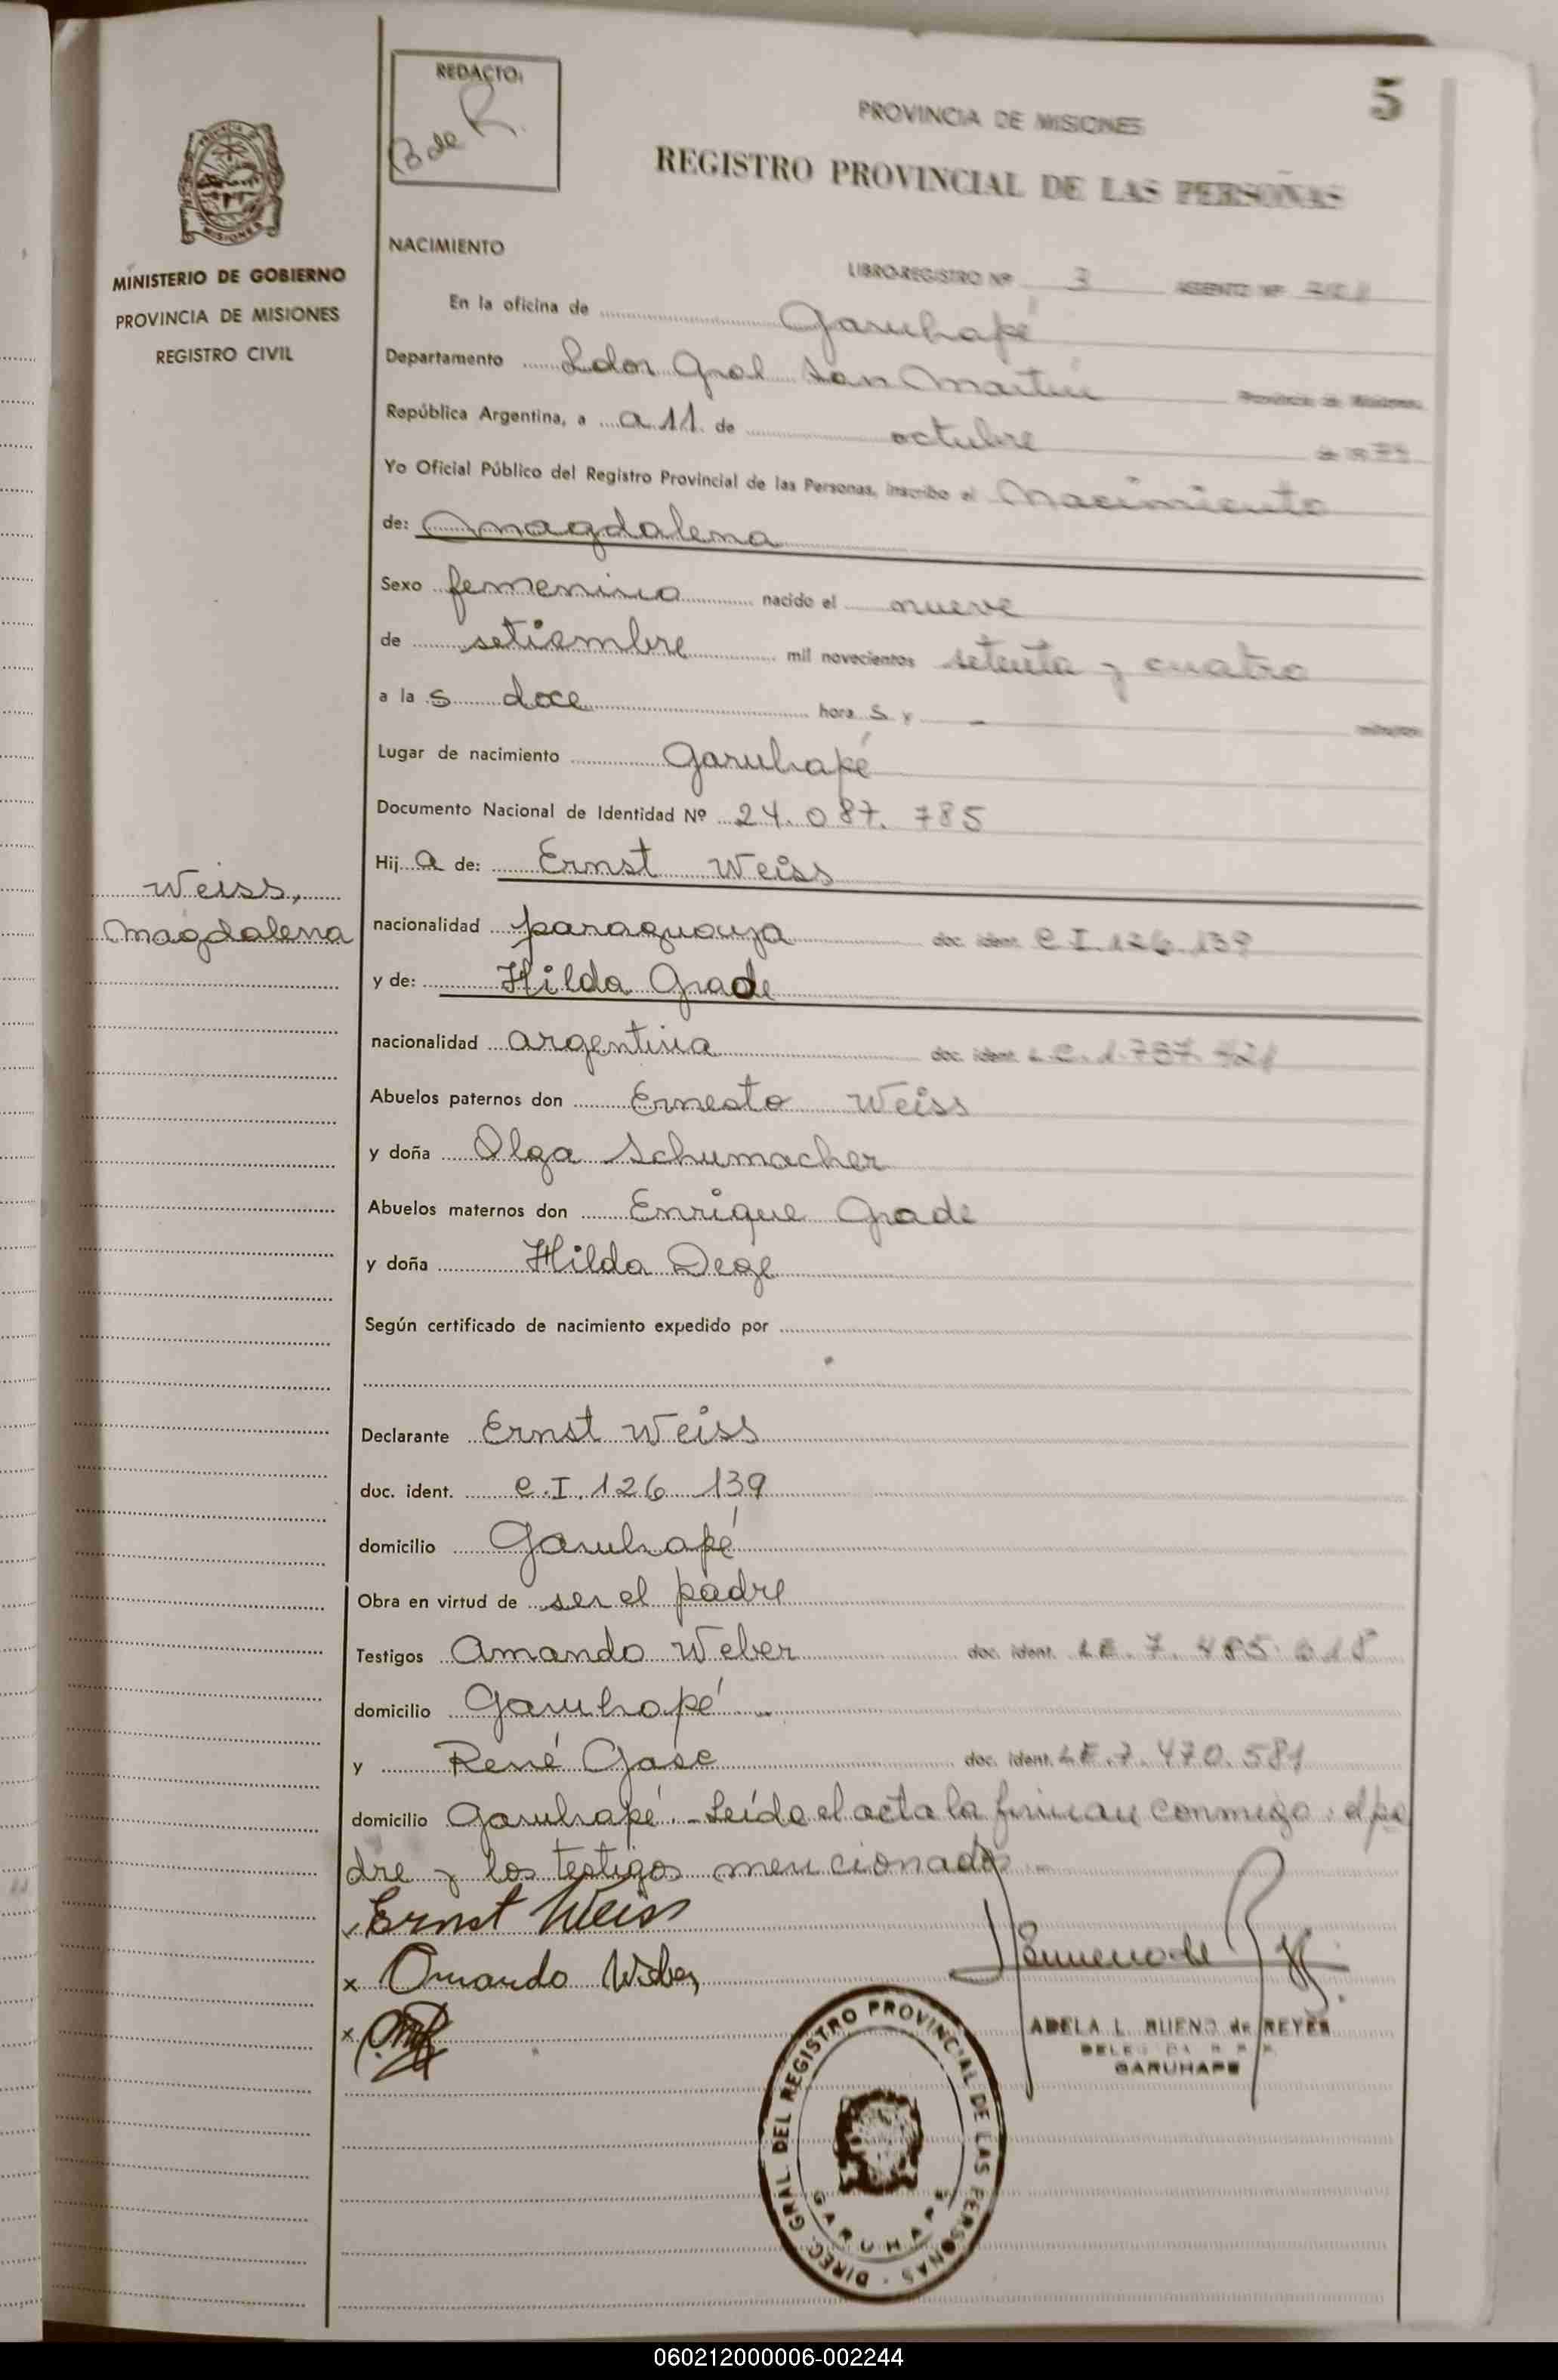 5
REDACTO:
B de R.
PROVINCIA DE MISIONES
REGISTRO PROVINCIAL DE LAS PERSONAS
MINISTERIO DE GOBIERNO
PROVINCIA DE MISIONES
REGISTRO CIVIL
Weiss,
Magdalena
NACIMIENTO
LIBRO-REGISTRO Nº 3 ASIENTO Nº
En la oficina de Garuhapé
Departamento Ldor Gral San Martín Provincia de Misiones,
República Argentina, a a 11 de octubre de 19
Yo Oficial Público del Registro Provincial de las Personas, inscribo el Nacimiento
de: Magdalena
Sexo femenino nacido el nueve
de setiembre mil novecientos setenta y cuatro
a la s doce hora s y - minutos
Lugar de nacimiento Garuhapé
Documento Nacional de Identidad Nº 24.087.785
Hij a de: Ernst Weiss
nacionalidad paraguaya doc. ident. C.I.126.139
y de: Hilda Grade
nacionalidad argentina doc. ident. L.C.1.787.421
Abuelos paternos don Ernesto Weiss
y doña Olga Schumacher
Abuelos maternos don Enrique Grade
y doña Hilda Dege
Según certificado de nacimiento expedido por
Declarante Ernst Weiss
doc. ident. C.I.126.139
domicilio Garuhapé
Obra en virtud de ser el padre
Testigos Amando Weber doc. ident. LE.7.485.618
domicilio Garuhapé.-
y René Gasc doc. ident. LE.7.470.581
domicilio Garuhapé.-Leída el acta la firman conmigo: el pa
dre y los testigos mencionados.-
Ernst Weiss
x Amando Weber
x
ADELA L. BUENO de REYES
GARUHAPE
DIREC. GRAL. DEL REGISTRO PROVINCIAL DE LAS PERSONAS
GARUHAPE
060212000006-002244